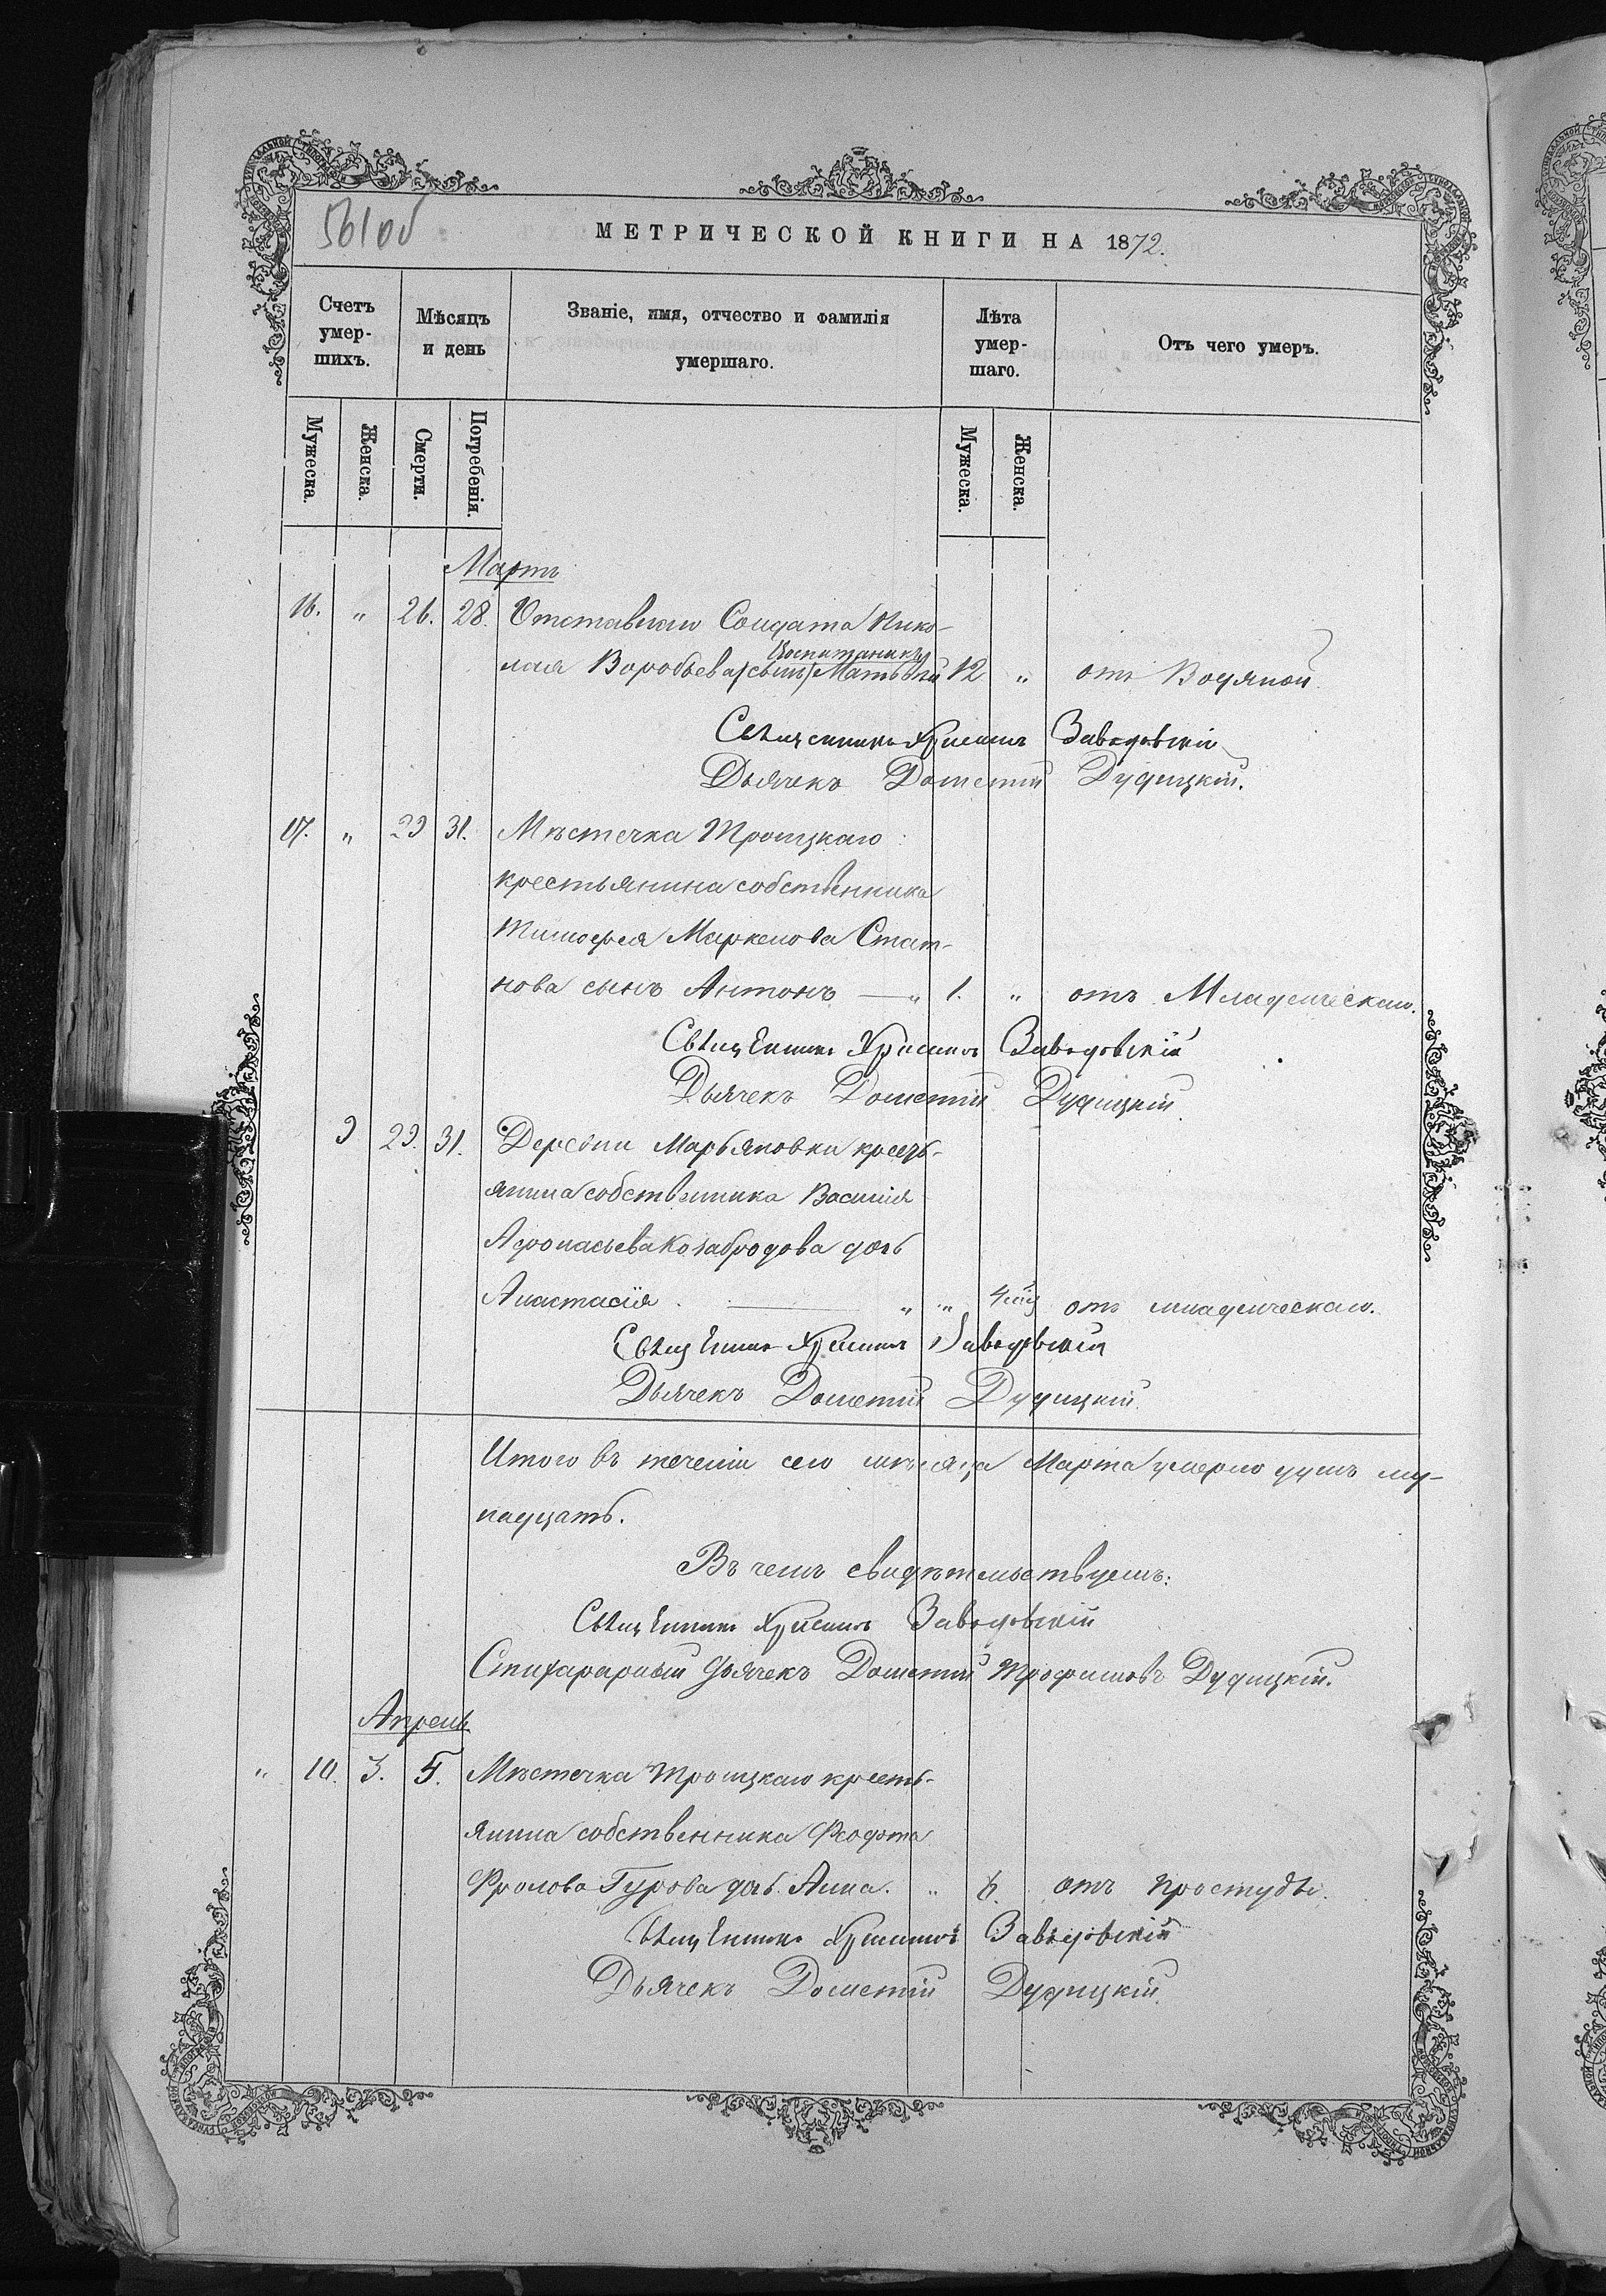 561об
МЕТРИЧЕСКОЙ КНИГИ НА 1872.
Счетъ умер-шихъ.
Мѣсяцъ и день
Званіе, имя, отчество и фамилія умершаго.
Лѣта умер-шаго.
Отъ чего умеръ.
Мужеска. Женска. Смерти. Погребенія. Мужеска. Женска.
Мартъ
16. " 26. 28. Отставнаго Солдата Нико-
Воспитаникъ
лая Воробьева (сынъ) Матвѣй 12 " отъ Водяной
Священникъ Заводовскій
Дьячекъ Дометій Дудицкій.
17. " 29 31. Мѣстечка Троицкаго
крестьянина собственника
Тимофея Маркелова
нова сынъ Антонъ — " 1. " отъ Младенческаго.
Священникъ Заводовскій
Дьячекъ Дометій Дудицкій
9 29. 31. Деревни Марьяновки кресть-
янина собственника Василія
Афонасьева Козабродова дочь
Анастасія. — " " отъ младенческаго.
Священникъ Заводовскій
Дьячекъ Дометій Дудицкій.
Итого въ теченіи сего мѣсяца Марта умерло душъ
надцать.
Въ чемъ свидѣтельствуемъ:
Священникъ Заводовскій
Стихарарный дьячекъ Дометій Трофимовъ Дудицкій.
Апрель
" 10. 3. 5. Мѣстечка Троицкаго кресть-
янина собственника Феодота
Фролова Гурова дочь Анна. " 6. отъ простуды.
Священникъ Заводовскій
Дьячекъ Дометій Дудицкій